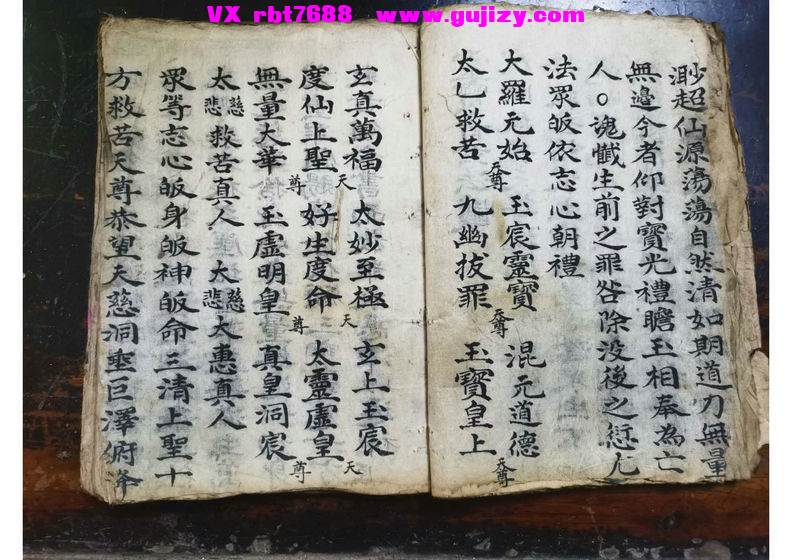 VX rbt7688 www.gujizy.com
渺超仙源蕩蕩自然清如期道力無量
無邊今者仰對寶光禮瞻玉相奉為亡
人○魂懺生前之罪咎除没後之愆尤
法眾皈依志心朝禮
大羅元始天尊 玉宸靈寶天尊 混元道德天尊
太乙救苦 九幽拔罪 玉寶皇上
玄真萬福 太妙至極 玄上玉宸
度仙上聖天尊 好生度命天尊 太靈虛皇天尊
無量大華 玉虛明皇 真皇洞宸
太慈悲救苦真人 大慈悲大惠真人
眾等志心皈身皈神皈命三清上聖十
方救苦天尊恭望大慈洞垂巨澤俯